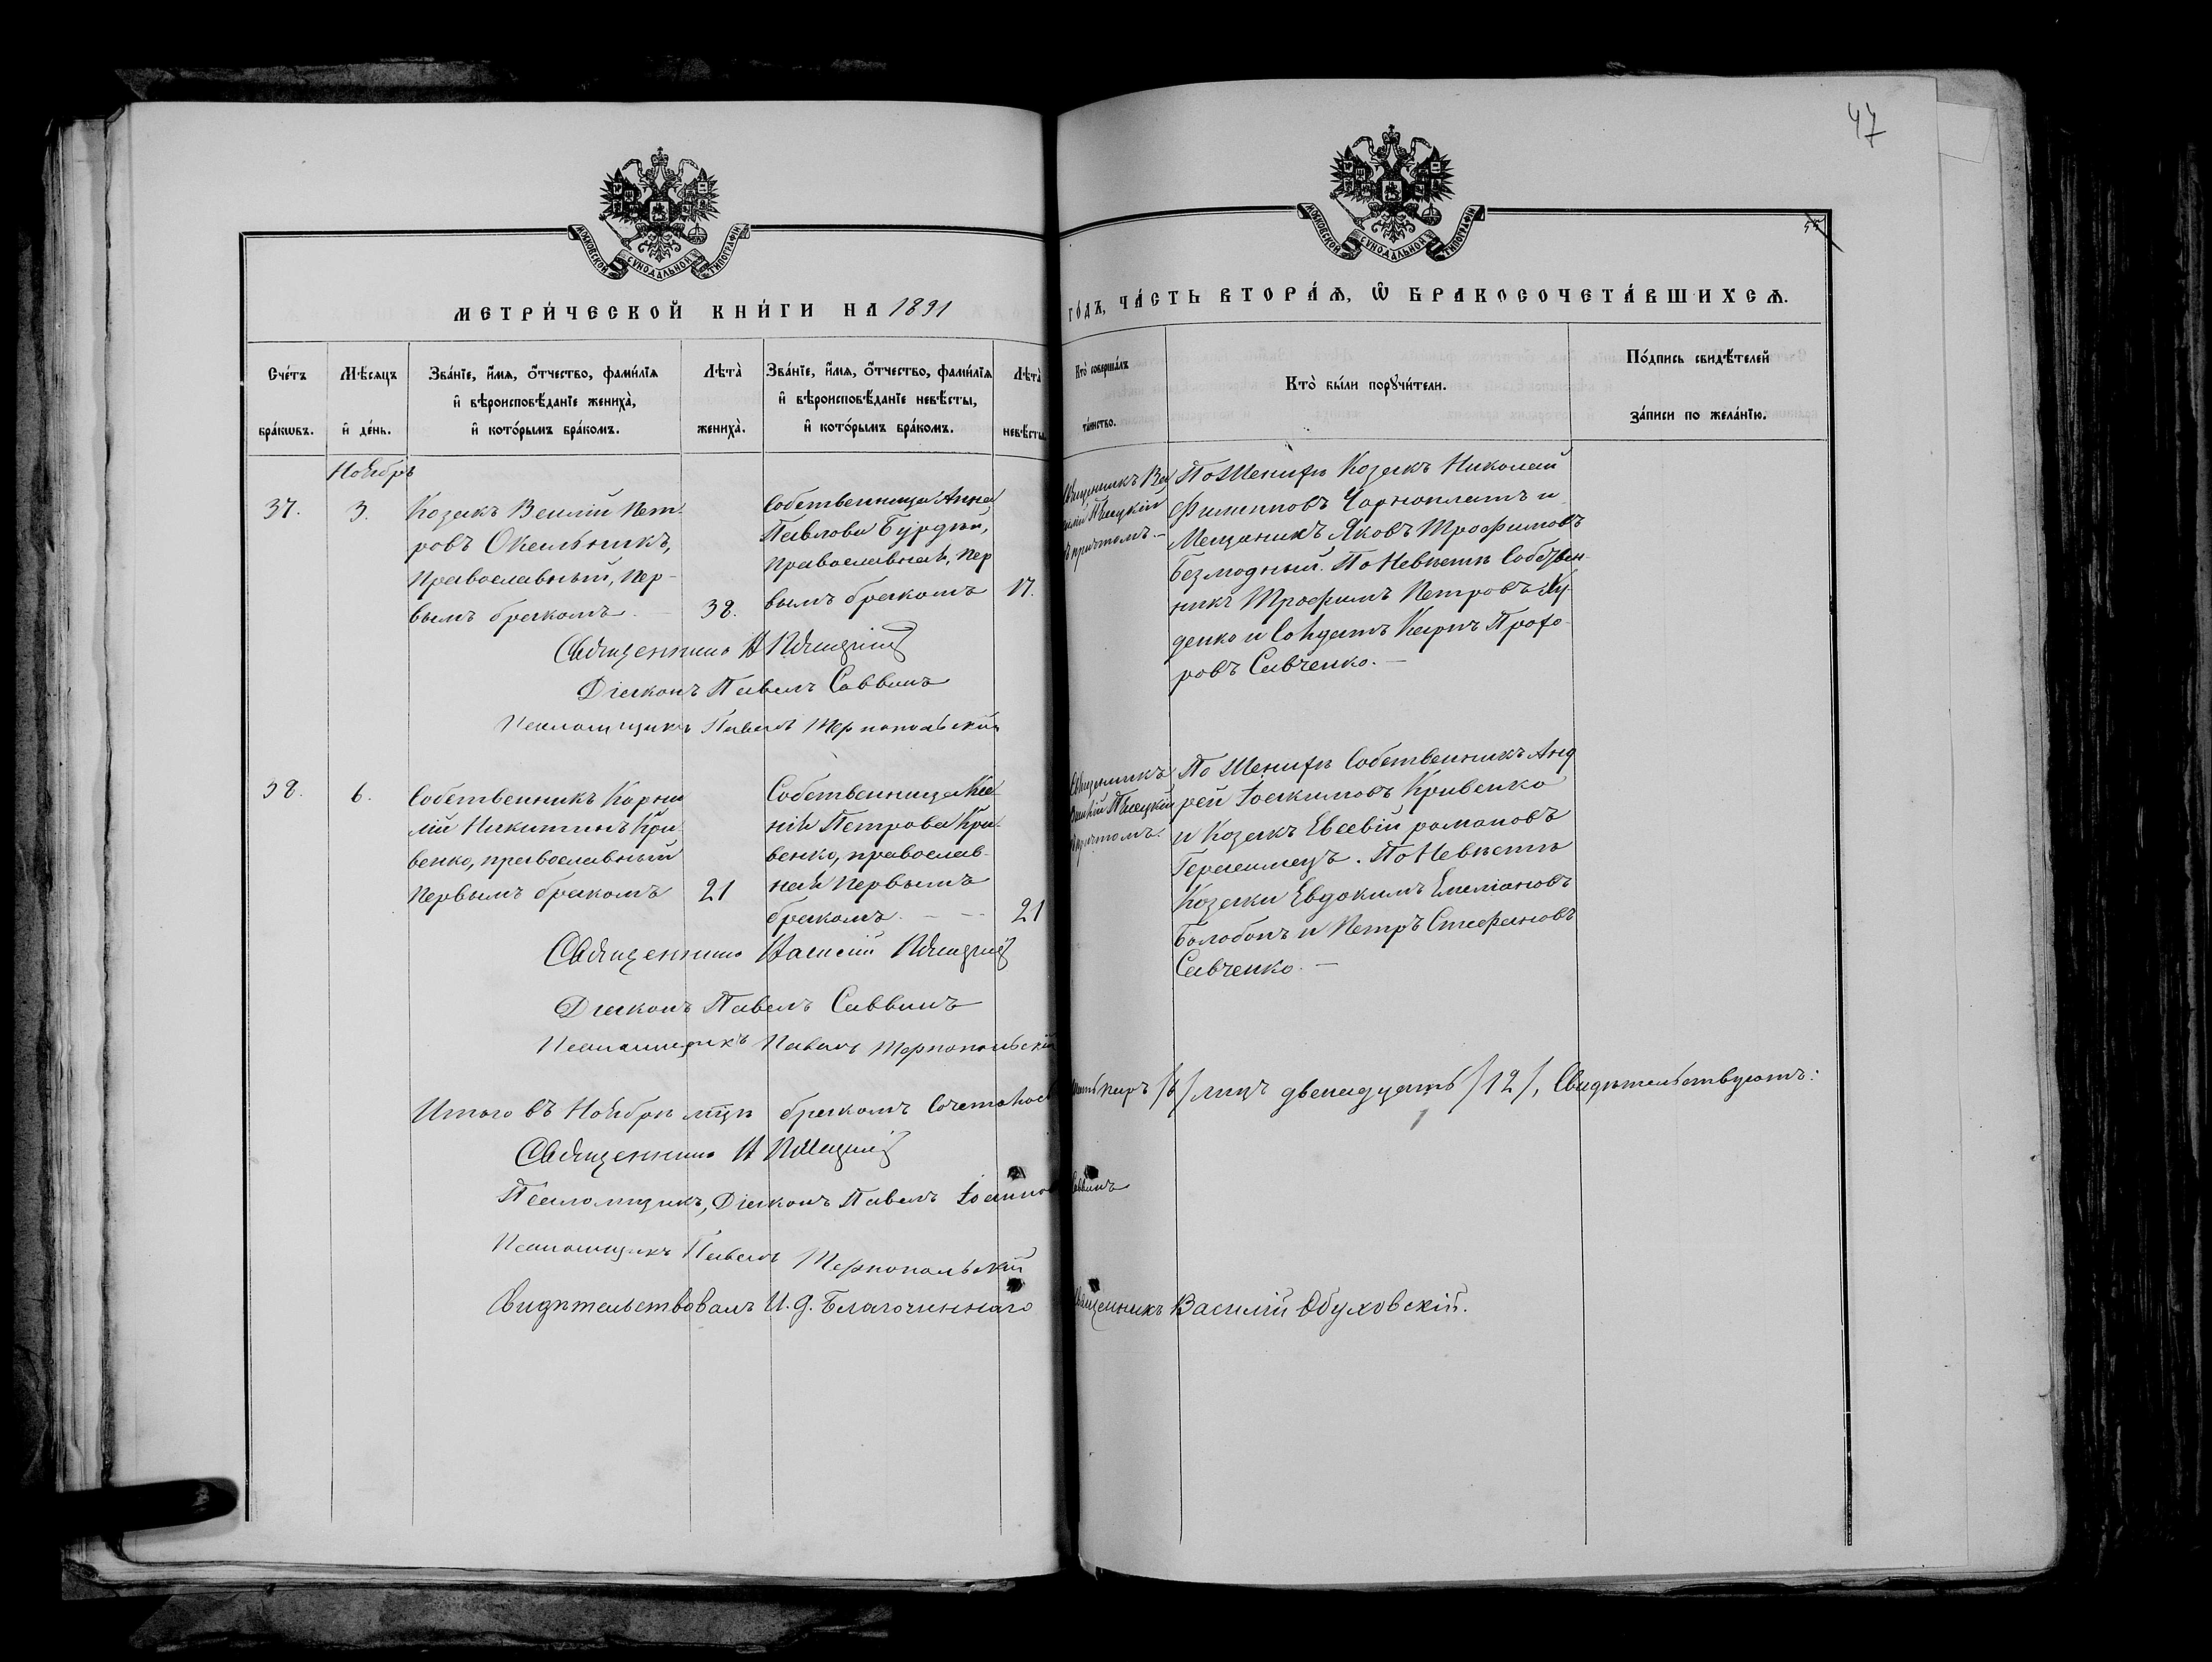 47
55
МОСКОВСКОЙ СѴНОДАЛЬНОЙ ТИПОГРАФІИ
МОСКОВСКОЙ СѴНОДАЛЬНОЙ ТИПОГРАФІИ
МЕТРИ́ЧЕСКОЙ КНИ́ГИ НА 1891
ГО́ДЪ, ЧА́СТЬ ВТОРА́Ѧ, Ѿ БРАКОСОЧЕТА́ВШИХСѦ.
Сче́тъ
бра́кѡвъ.
Мѣ́сяцъ
и҆ де́нь.
Зва́нїе, и҆́мѧ, ѻ҆́тчество, фами́лїѧ
и҆ вѣроисповѣ́данїе жениха̀,
и҆ кото́рымъ бра́комъ.
Лѣта̀
жениха̀.
Зва́нїе, и҆́мѧ, ѻ҆́тчество, фами́лїѧ
и҆ вѣроисповѣ́данїе невѣ́сты,
и҆ кото́рымъ бра́комъ.
Лѣта̀
невѣ́сты.
Кто̀ соверша́лъ
та́инство.
Кто̀ бы́ли порꙋчи́тели.
По́дпись свидѣ́телей
за́писи по жела́нїю.
Ноябрь
37.
3.
Козакъ Василій Пет-
ровъ
Православный, пер-
вымъ бракомъ.
38.
Собственница Анна
Павлова
Православная, пер
вымъ бракомъ
17.
Священникъ Ва
силій
съ причтомъ.—
По Женихѣ Козакъ Николай
Филипповъ Чорноплатъ и
Мещанинъ Яковъ Трофимовъ
Безмодный. По Невѣстѣ Собствен-
никъ Трофимъ Петровъ Ху-
денко и Солдатъ Карпъ Прохо-
ровъ Савченко.—
Священникъ В
Діаконъ Павелъ Саввинъ
Псаломщикъ Павелъ Тернопольскій
38.
6.
Собственникъ Корни
лій Никитинъ Кри
венко, православный
Первымъ бракомъ
21
Собственница Ксе
нія Петрова Кри-
венко, православ-
ная Первымъ
бракомъ.
21
Священникъ
Василій
съ причтомъ.
По Женихѣ Собственникъ Анд
рей Іоакимовъ Кривенко
и Козакъ Евсевій романовъ
Герасимецъ. По Невѣстѣ
Козаки Евдокимъ Емеліановъ
Балобонъ и Петръ Стефановъ
Савченко.—
Священникъ Василій
Діаконъ Павелъ Саввинъ
Псаломщикъ Павелъ Тернопольскій
Итого въ Ноябрѣ мцѣ бракомъ сочеталось шесть паръ /6/ лицъ двенадцать /12/, Свидѣтельствуютъ:
Священникъ В
Псаломщикъ, Діаконъ Павелъ Іоанновъ Саввинъ
Псаломщикъ Павелъ Тернопольскій
Свидѣтельствовалъ И. д. Благочиннаго Священникъ Василій Обуховскій.